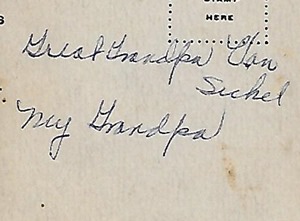 STAMP
HERE
Great Grandpa Van
Sickel
My Grandpa